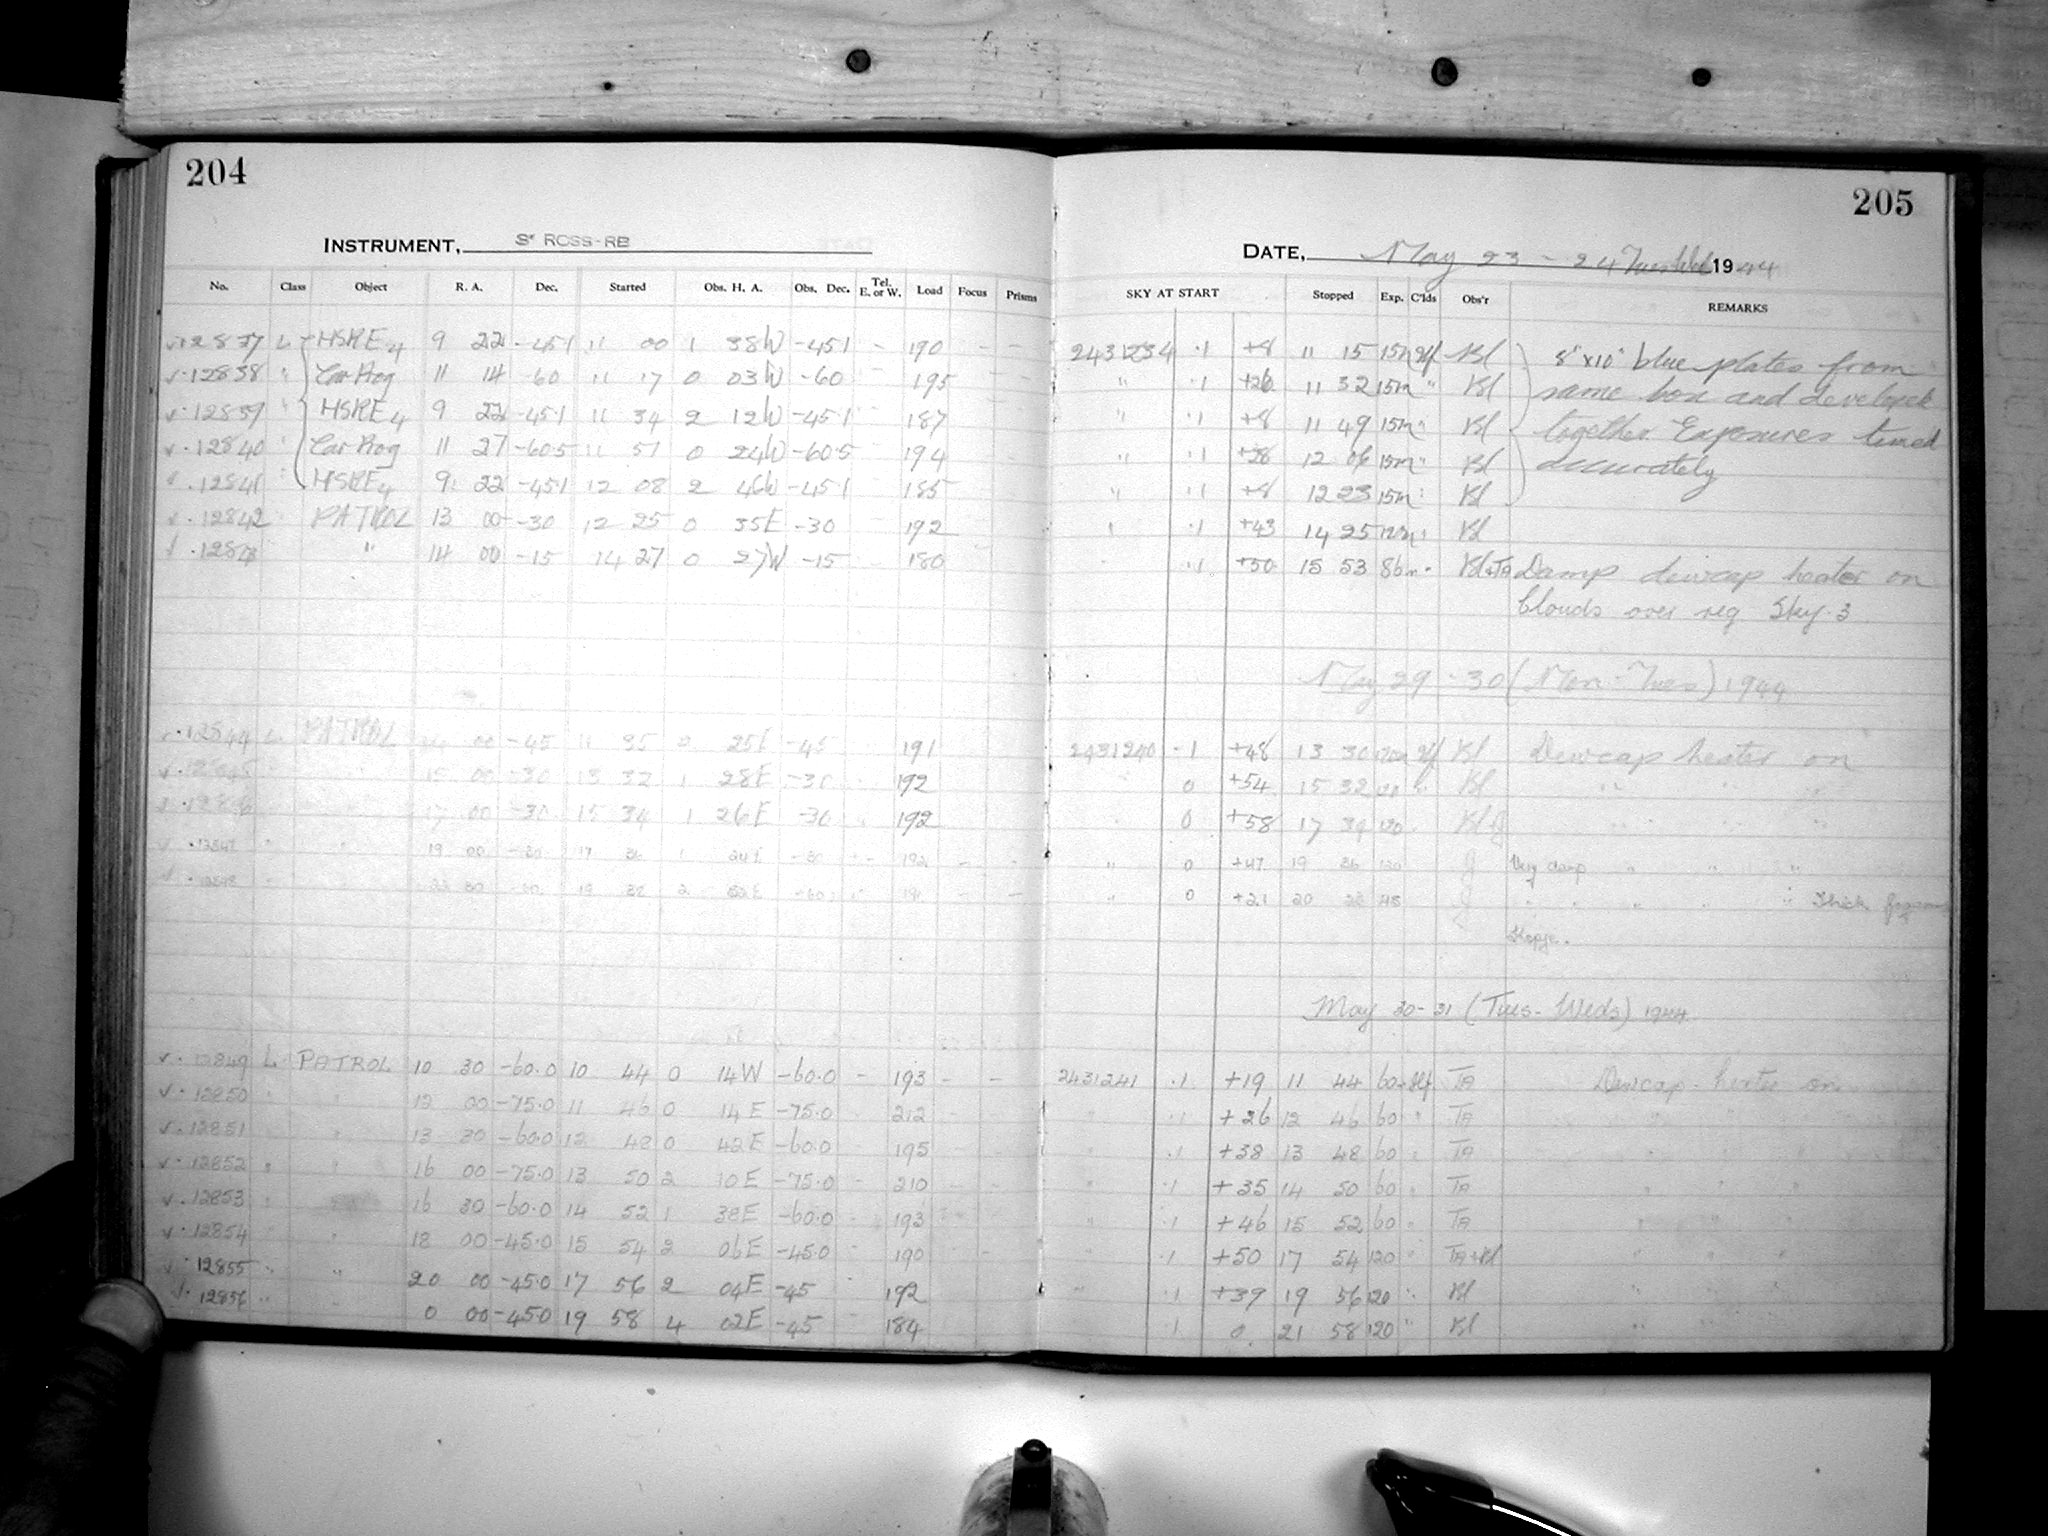 204
205
INSTRUMENT, 3" ROSS-RB
DATE, May 23 - 24 1944
No. Class Object R. A. Dec. Started Obs. H. A. Obs. Dec. Tel. E. or W. Load Focus Prisms SKY AT START Stopped Exp. C'lds Obs'r REMARKS
12837 L HSRE4 9 22 -45.1 11 00 1 38W -45.1 - 190 - - 2431234 .1 +8 11 15 15m Bl 8"x10" blue plates from
12838 " Car Prog 11 14 -60 11 17 0 03W -60 195 " .1 +26 11 32 15m " Bl same box and developed
12839 " HSRE4 9 22 -45.1 11 34 2 12W -45.1 187 " .1 +8 11 49 15m " Bl together Exposures timed
12840 " Car Prog 11 27 -60.5 11 51 0 24W -60.5 194 " .1 +28 12 06 15m " Bl accurately
12841 " HSRE4 9 22 -45.1 12 08 2 46W -45.1 185 " .1 +8 12 23 15m " Bl
12842 " PATROL 13 00 -30 12 25 0 35E -30 192 .1 +43 14 25 120m Bl
12843 " 14 00 -15 14 27 0 27W -15 180 .1 +50 15 53 86m Bl+TA Damp dewcap heater on
Clouds over reg Sky .3
May 29 - 30 (Mon - Tues) 1944
12844 L PATROL 00 -45 11 35 2 25E -45 191 2431240 .1 +48 13 30 Bl Dewcap heater on
12845 15 00 -30 13 32 1 28E -30 192 0 +54 15 32 120 Bl " " "
12846 17 00 -30 15 34 1 26E -30 192 0 +58 17 34 120 Bl J " " "
12847 " " 19 00 -30 17 36 1 24E -30 - 192 - - " 0 +47 19 36 120 J Very damp " " "
12848 00 -60 19 38 2 52E -60 - - " 0 +21 20 J " " " " " Thick fog
Kopje.
May 30-31 (Tues-Weds) 1944
12849 L PATROL 10 30 -60.0 10 44 0 14W -60.0 - 193 - - 2431241 .1 +19 11 44 60 TA Dewcap heater on
12850 " " 12 00 -75.0 11 46 0 14E -75.0 212 " .1 +26 12 46 60 " TA
12851 " " 13 30 -60.0 12 48 0 42E -60.0 195 " .1 +38 13 48 60 " TA
12852 " " 16 00 -75.0 13 50 2 10E -75.0 210 " .1 +35 14 50 60 " TA
12853 " " 16 30 -60.0 14 52 1 38E -60.0 193 " .1 +46 15 52 60 " TA
12854 " " 18 00 -45.0 15 54 2 06E -45.0 190 " .1 +50 17 54 120 " TA+Bl
12855 " " 20 00 -45.0 17 56 2 04E -45 192 " .1 +39 19 56 120 " Bl
12856 " " 0 00 -45.0 19 58 4 02E -45 184 .1 0 21 58 120 " Bl